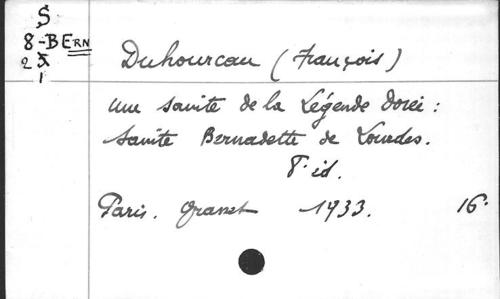 S
8-BERN
2
1
Duhourcau (François)
Une sainte de la Légende dorée :
Sainte Bernadette de Lourdes.
éd.
Paris. Grasset 1933. 16°